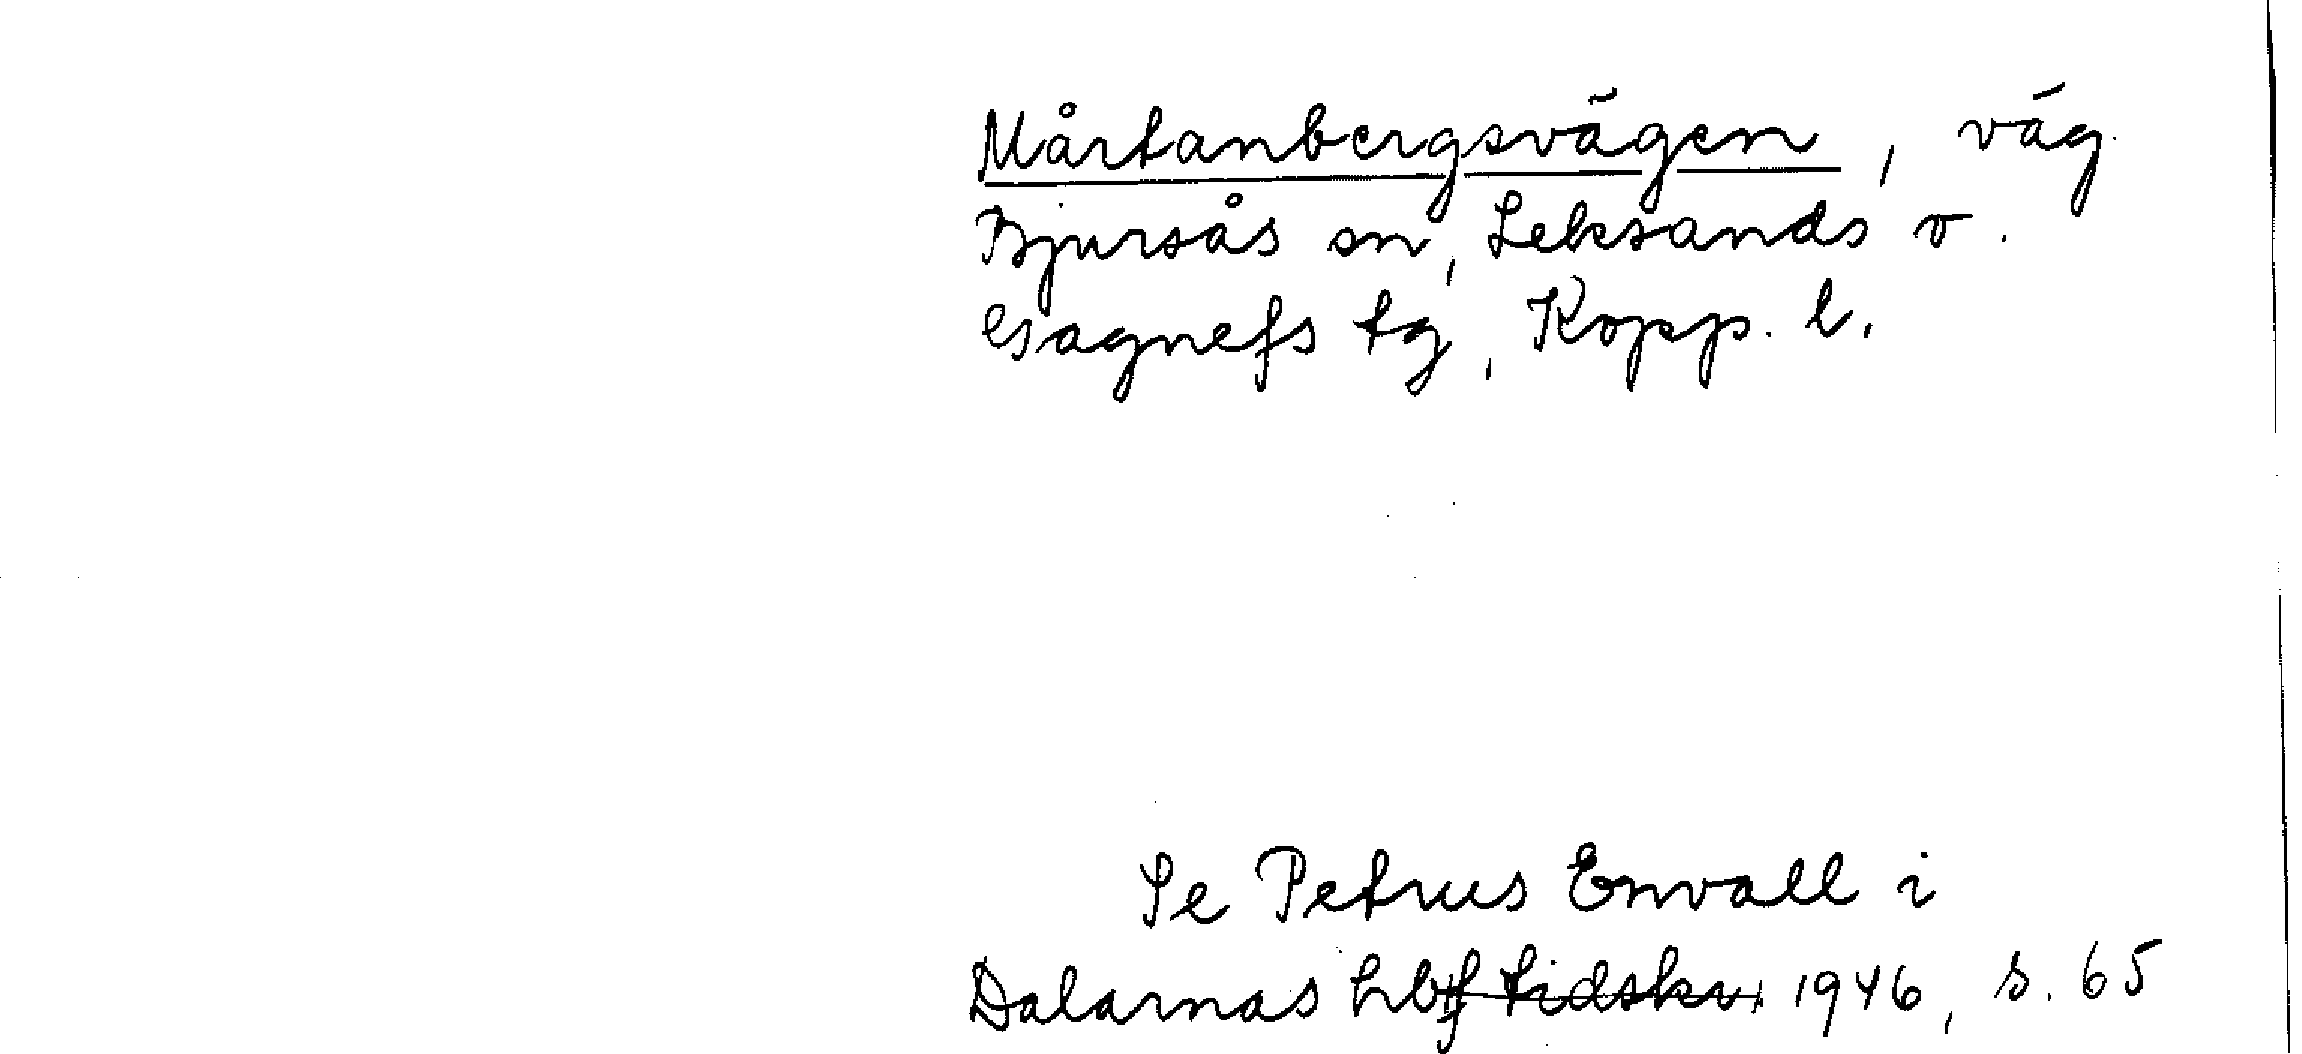 Mårtanbergsvägen, väg
Bjursås sn, Leksands o.
Gagnefs tg, Kopp. l.
Se Petrus Envall i
Dalarnas hbf tidskr. 1946, s. 65